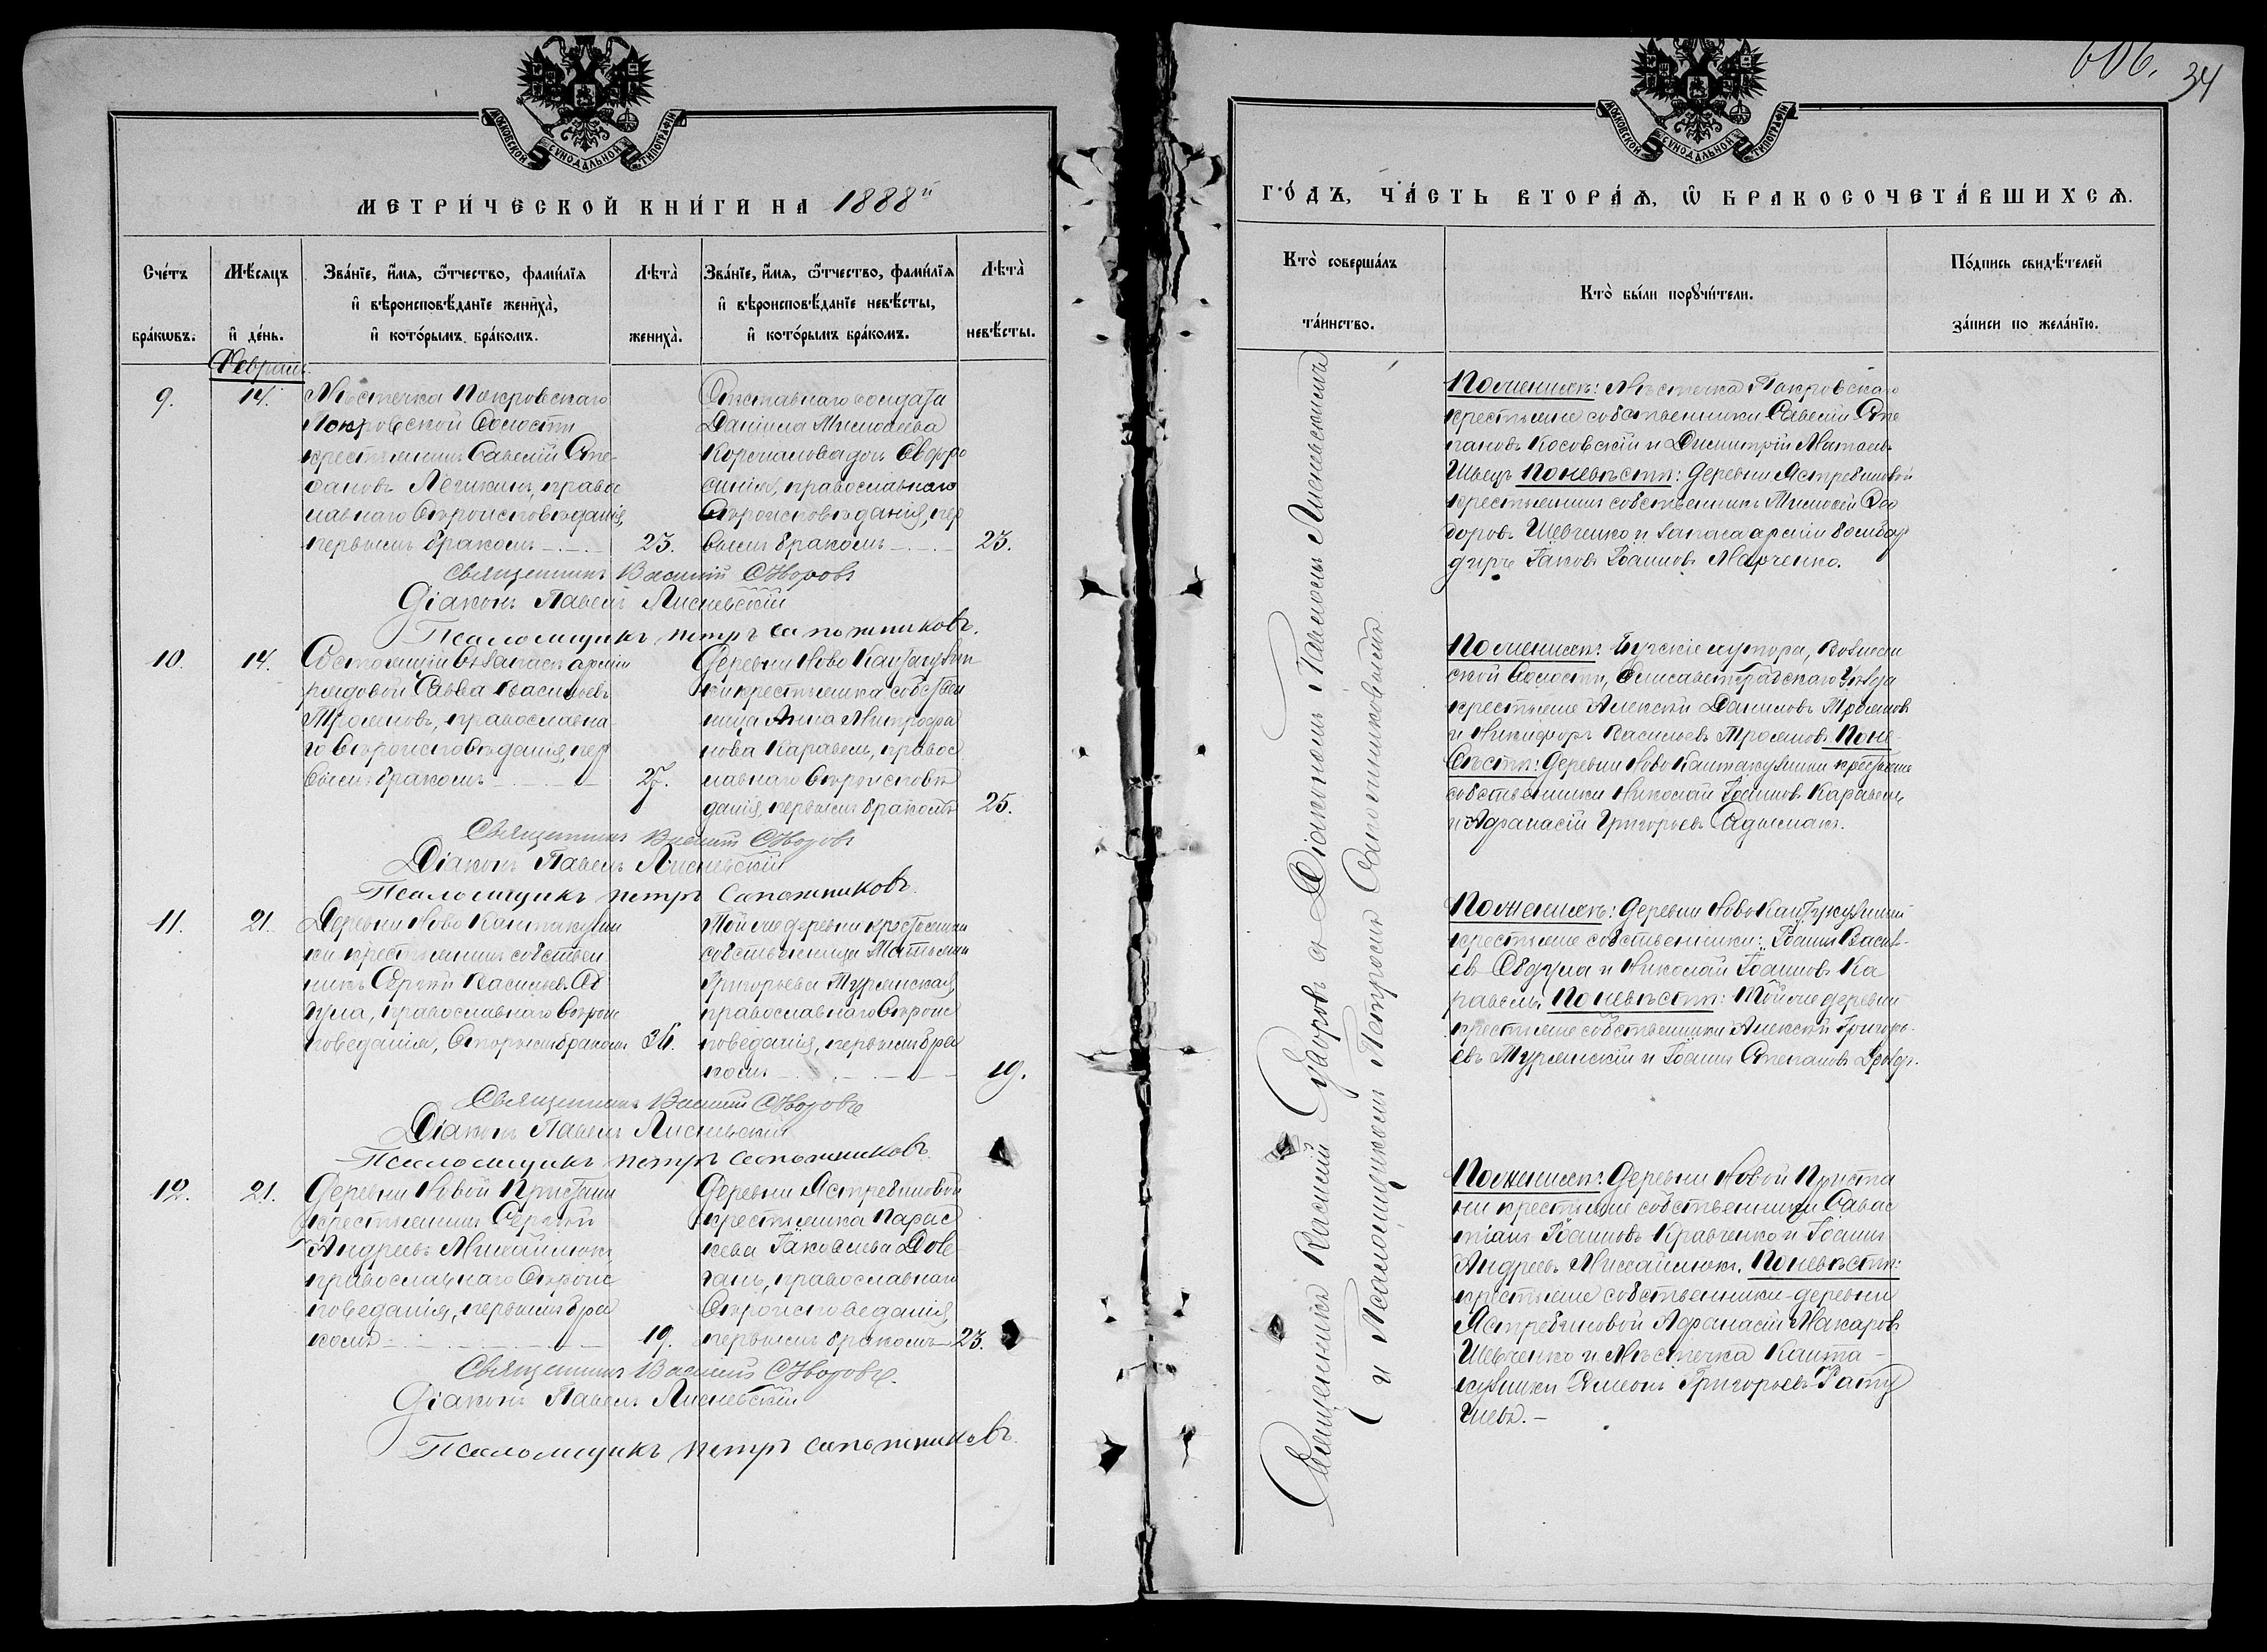 606. 34
МОСКОВСКОЙ СѴНОДАЛЬНОЙ ТИПОГРАФІИ
МЕТРИ́ЧЕСКОЙ КНИ́ГИ НА 1888й
Сче́тъ бра́кѡвъ.
Мѣ́сяцъ и҆ де́нь.
Зва́нїе, и҆́мѧ, ѻ҆́тчество, фами́лїѧ
и҆ вѣроисповѣ́данїе жениха̀,
и҆ кото́рымъ бра́комъ.
Лѣта̀ жениха̀.
Зва́нїе, и҆́мѧ, ѻ҆́тчество, фами́лїѧ
и҆ вѣроисповѣ́данїе невѣ́сты,
и҆ кото́рымъ бра́комъ.
Лѣта̀ невѣ́сты.
Февраль
9.
14.
Мѣстечка Покровскаго
Покровской волости
крестьянинъ Савелій Сте-
фановъ Легикинъ, право
славнаго вѣроисповѣданія,
первымъ бракомъ
23.
Отставнаго солдата
Даніила Тимофеева
дочь Евфро
синія, православнаго
вѣроисповѣданія, пер
вымъ бракомъ
23.
Священникъ Василій Суворовъ
Діаконъ Павелъ Лисневскій
Псаломщикъ петръ сапожниковъ.
10.
14.
Состоящій въ запасѣ арміи
рядовой Савва Васильевъ
Трояновъ, православна
го вѣроисповѣданія, пер
вымъ бракомъ
27.
Деревни Ново Кантакузин
ки крестьянка собствен
ница Анна Митрофа
нова Каравелъ, правос
лавнаго вѣроисповѣ
данія, первымъ бракомъ
25.
Священникъ Василій Суворовъ
Діаконъ Павелъ Лисневскій
Псаломщикъ петръ Сапожниковъ.
11.
21.
Деревни Ново Кантакузин
ки крестьянинъ собствен
никъ Сергѣй Васильевъ Об
дула, православнаго вѣроис
поведанія, вторымъ бракомъ
36.
Той же деревни крестьянка
собственница
Григорьева Турлянская,
православнаго вѣроис
поведанія, первымъ бра
комъ
19.
Священникъ Василій Суворовъ
Діаконъ Павелъ Лисневскій
Псаломщикъ петръ сапожниковъ
12.
21.
Деревни Новой Пристани
крестьянинъ Сергѣй
Андреевъ Михайлюкъ,
православнаго вѣроис
поведанія, первымъ бра
комъ
19.
Деревни Ястребиновой
крестьянка Парас
кева Іаковлева Дов
гань, православнаго
вѣроисповеданія,
первымъ бракомъ
23.
Священникъ Василій Суворовъ.
Діаконъ Павелъ Лисневскій
Псаломщикъ петръ сапожниковъ.
МОСКОВСКОЙ СѴНОДАЛЬНОЙ ТИПОГРАФІИ
ГО́ДЪ, ЧА́СТЬ ВТОРА́Ѧ, Ѡ҆ БРАКОСОЧЕТА́ВШИХСѦ.
Кто̀ соверша́лъ та́инство.
Кто̀ бы́ли порꙋчи́тели.
По́дпись свидѣ́телей за́писи по жела́нїю.
Священникъ Василій Суворовъ съ Діакономъ Павломъ Лисневскимъ
и Псаломщикомъ Петромъ Сапожниковымъ
По женихѣ: Мѣстечка Покровскаго
крестьяне собственники Савелій Сте
пановъ Косовскій и Димитрій Матвеевъ
Швецъ По невѣстѣ: деревни Ястребиновой
крестьянинъ собственникъ Тимофей Фео
доровъ Шевченко и запаса арміи бомбар
диръ Іаковъ Іоанновъ Марченко.
По женихѣ: Бугскіе хутора, Вознесен
ской волости, Елисаветградскаго уѣзда
крестьяне Алексѣй Даниловъ Трояновъ
и Никифоръ Васильевъ Трояновъ По не
вѣстѣ: деревни Ново Кантакузинки крестьяне
собственники Николай Іоанновъ Каравелъ
и Афанасій Григорьевъ
По женихѣ: деревни Ново Кантакузинки
крестьяне собственники: Іоаннъ Василь-
евъ Обдула и Николай Іоанновъ Ка
равелъ. По невѣстѣ: Той же деревни
крестьяне собственники Алексѣй Григорь-
евъ Турлянскій и Іоаннъ Степановъ
По женихѣ: деревни Новой Приста
ни крестьяне собственники Савас
тіанъ Іоанновъ Кравченко и Іоаннъ
Андреевъ Михайлюкъ. По невѣстѣ:
крестьяне собственники деревни
Ястребиновой Афанасій Макаровъ
Шевченко и Мѣстечка Канта-
кузинки Симеонъ Григорьевъ Рату
шевъ.